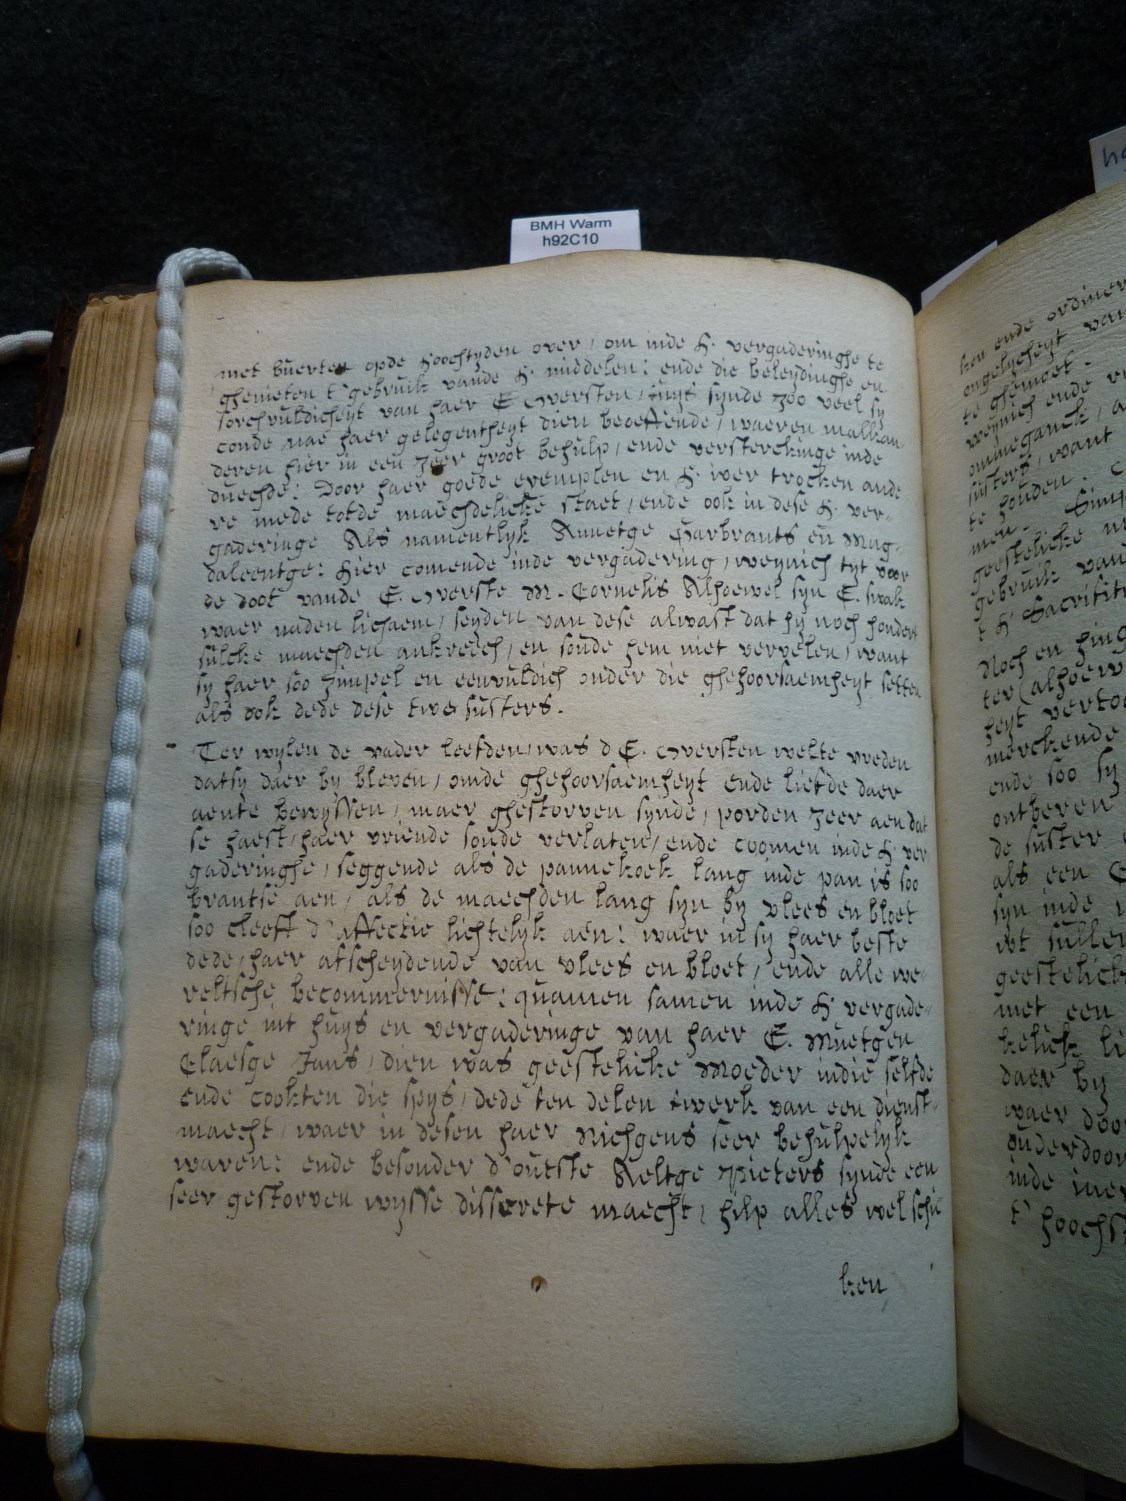 BMH Warm
h92C10
met buerten opde hoochtyden over, om inde H. vergaderinghe te
ghenieten t'gebruik vande H. middelen: ende die beleydinghe en
sorchvuldicheyt van haer E Oversten, huys synde zoo veel sy
conde nae haer gelegentheyt dien beoeffende, waeren malkan
deren hier in een zeer groot behulp, ende versterckinge inde
duechde: Door haer goede exemplen en H. iver trocken ande
re mede totde maechdelicke staet, ende ook in dese H. ver-
gaderinge Als namentlyk Annetge Garbrants en Mag-
daleentge: hier comende inde vergadering, weynich tyt voor
de doot vande E. Overste M. Cornelis Alhoewel syn E. swak
waer naden lichaem, seyden van dese alwast dat hy noch hondert
sulcke maechden ankreech, en soude hem niet vervelen, want
sy haer soo simpel en eenvuldich onder die ghehoorsaemheyt setten
als ook dede dese twe susters.
Ter wylen de vader leefden, was d E. Oversten welte vreden
datsy daer by bleven, omde ghehoorsaemheyt ende liefde daer
aente bewyssen, maer ghestorven synde, porden zeer aen dat
se haest, haer vriende soude verlaten, ende coomen inde H ver
gaderinghe, seggende als de pannekoek lang inde pan is soo
brantse aen, als de maechden lang syn by vlees en bloet
soo cleeft d'affectie lichtelyk aen: waer in sy haer beste
dede, haer afscheydende van vlees en bloet, ende alle we
reltsche becommernisse: quamen samen inde H vergade-
ringe int huys en vergaderinge van haer E. Muetgen
Claesge Jans, dien was geestelicke Moeder indie selfde
ende cookten die spys, dede ten delen twerk van een dienst-
maecht, waer in desen haer Nichgens seer behulpelyk
waren: ende besonder d'outste Aeltge Pieters synde een
seer gestorven wysse disserete maecht, hilp alles wel schic
ken
ken ende
ongelycheyt van
te ghemoet.
weynich ende
ommeganck,
susters, want
te houden.
men. Simp
geestelicke
gebruik van
t H Sacrifit
Noch en hing
ter (alhoew
heyt verto
merckende
ende soo sy
ontberen
de suster
als een
syn inde
wt sullen
geestelick
met een
kelick li
daer by
waer doo
ouderdoom
inde
t'hoochs